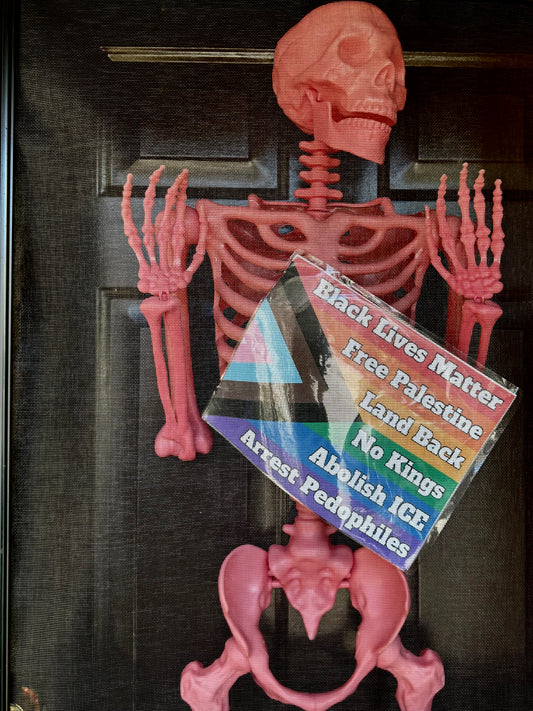 Black Lives Matter
Free Palestine
Land Back
No Kings
Abolish ICE
Arrest Pedophiles